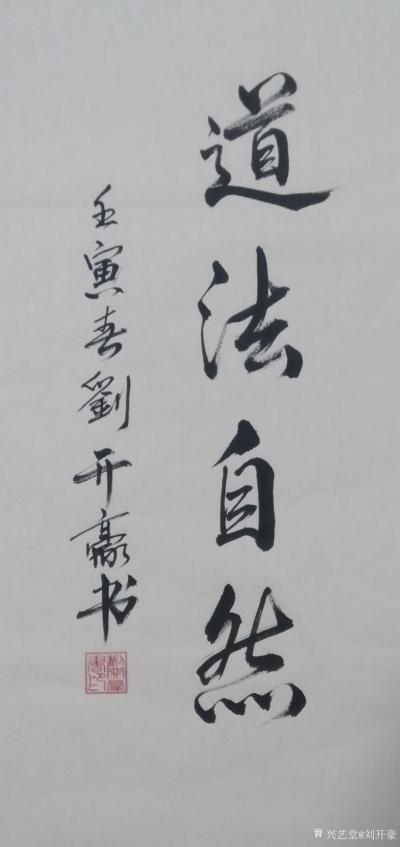 道法自然
壬寅春劉开豪书
兴艺堂@刘开豪